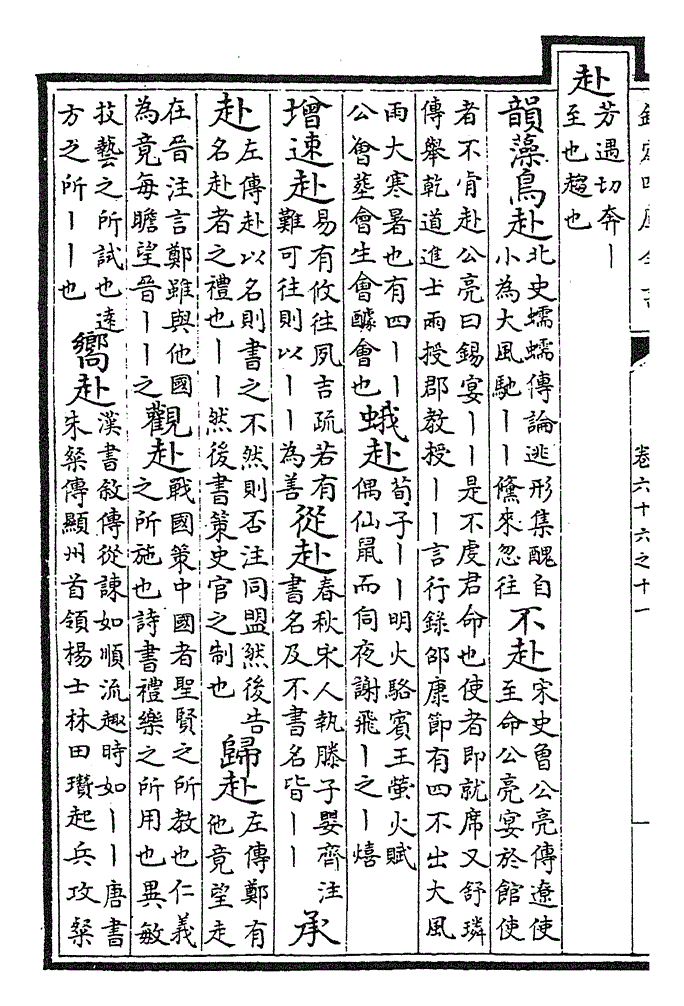 卷六十六之十一
赴
芳遇切奔丨
至也趨也
韻藻鳥赴
北史蠕蠕傳論逃形集醜自
小為大風馳丨丨儵來忽往
不赴
宋史魯公亮傳遼使
至命公亮宴於館使
者不肯赴公亮曰錫宴丨丨是不虔君命也使者即就席又舒璘
傳舉乾道進士兩授郡教授丨丨言行錄邵康節有四不出大風
雨大寒暑也有四丨丨
公會葬會生會醵會也
蛾赴
荀子丨丨明火駱賓王螢火賦
偶仙鼠而伺夜謝飛丨之丨熺
增速赴
易有攸往夙吉疏若有
難可往則以丨丨為善
從赴
春秋宋人執滕子嬰齊注
書名及不書名皆丨丨
承
赴
左傳赴以名則書之不然則否注同盟然後告
名赴者之禮也丨丨然後書策史官之制也
歸赴
左傳鄭有
他竟望走
在晉注言鄭雖與他國
為竟每瞻望晉丨丨之
觀赴
戰國策中國者聖賢之所教也仁義
之所施也詩書禮樂之所用也異敏
技藝之所試也遠
方之所丨丨也
嚮赴
漢書敘傳從諫如順流趣時如丨丨唐書
朱粲傳顯州首領楊士林田瓚起兵攻粲